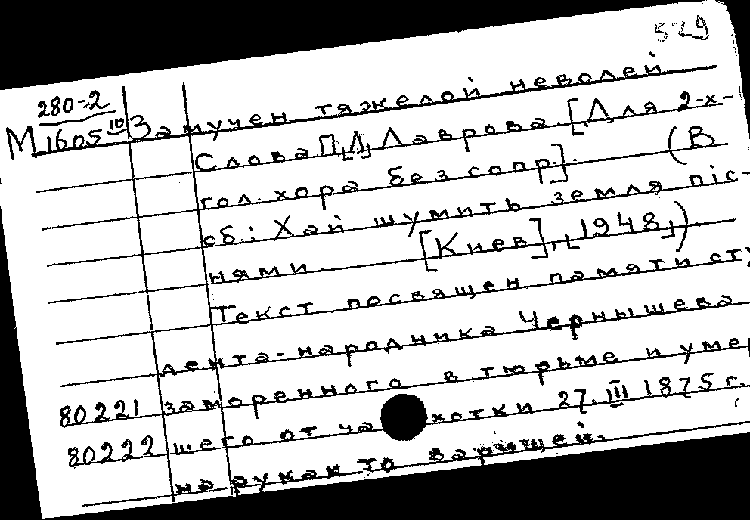 529
280-2
М 1605 III Замучен тяжелой неволей
Слова П[.]Л[.] Лаврова. [Для 2-х-
гол. хора без сопр.]. (В
сб.: Хай шумить земля піс-
нями. [Киев], [1948.])
Текст посвящен памяти сту
дента-народника Чернышева
80221 заморенного в тюрьме и умер
80222 шего от чахотки 27.III 1875 г.
на руках товарищей.